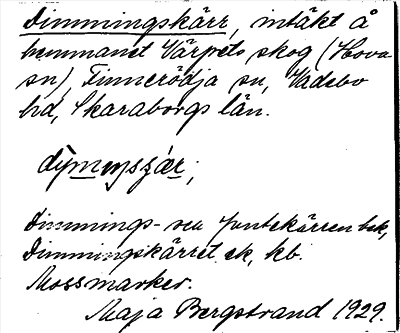 Dimmingskärr, intäkt å
hemmanet Värpets skog (Hova
sn), Finnerödja sn, Vadsbo
hd, Skaraborgs län.
Dimmings- och Juntekärren bek,
Dimmingskärret ek, kb.
Mossmarker.
Maja Bergstrand 1929.